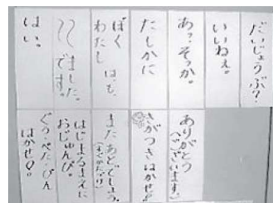 だいじょうぶ？
いいねぇ。
あっ、そっか。
たしかに
ぼく
わたし
はで、
〜でました。
です。
はい。
ありがとう
(ございます)
きがつきはかせ
またあとでしよう。
はじまるまえに
おじゅんび
ぐう・ぺた・ぴん
はかせ